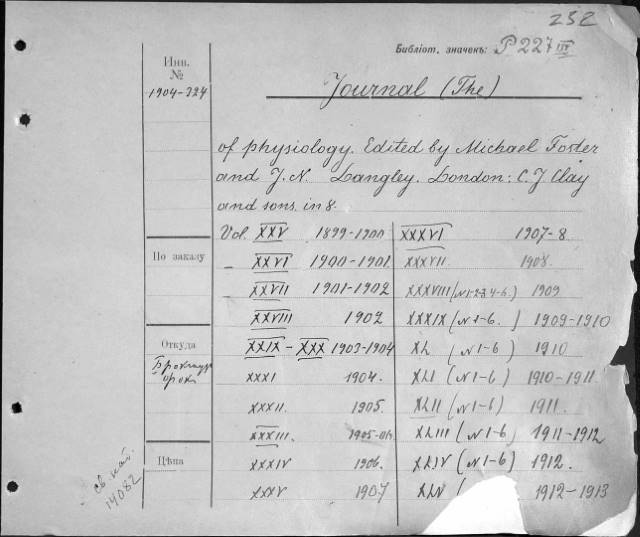 252
Библіот. значекъ: P 227 III
Инв.
№
1904-324
Journal (The)
of physiology. Edited by Michael Foster
and J. N. Langley. London: C. J Clay
and sons. in 8.
Vol. XXV 1899-1900 XXXVI 1907-8
По заказу
– XXVI 1900-1901. XXXVII. 1908.
– XXVII 1901-1902 XXXVIII (N 1-2-3 4-6.) 1909
XXVIII 1902 XXXIX (N 1-6. ) 1909-1910
Откуда
XXIX – XXX 1903-1904 XL (N 1-6) 1910
XXXI 1904. XLI (N 1-6) 1910-1911
XXXII. 1905. XLII (N 1-6) 1911.
XXXIII. 1905-06. XLIII (N 1-6) 1911-1912
Цѣна
XXXIV 1906. XLIV (N 1-6) 1912.
XXXV 1907 XLV ( 1912-1913
14082